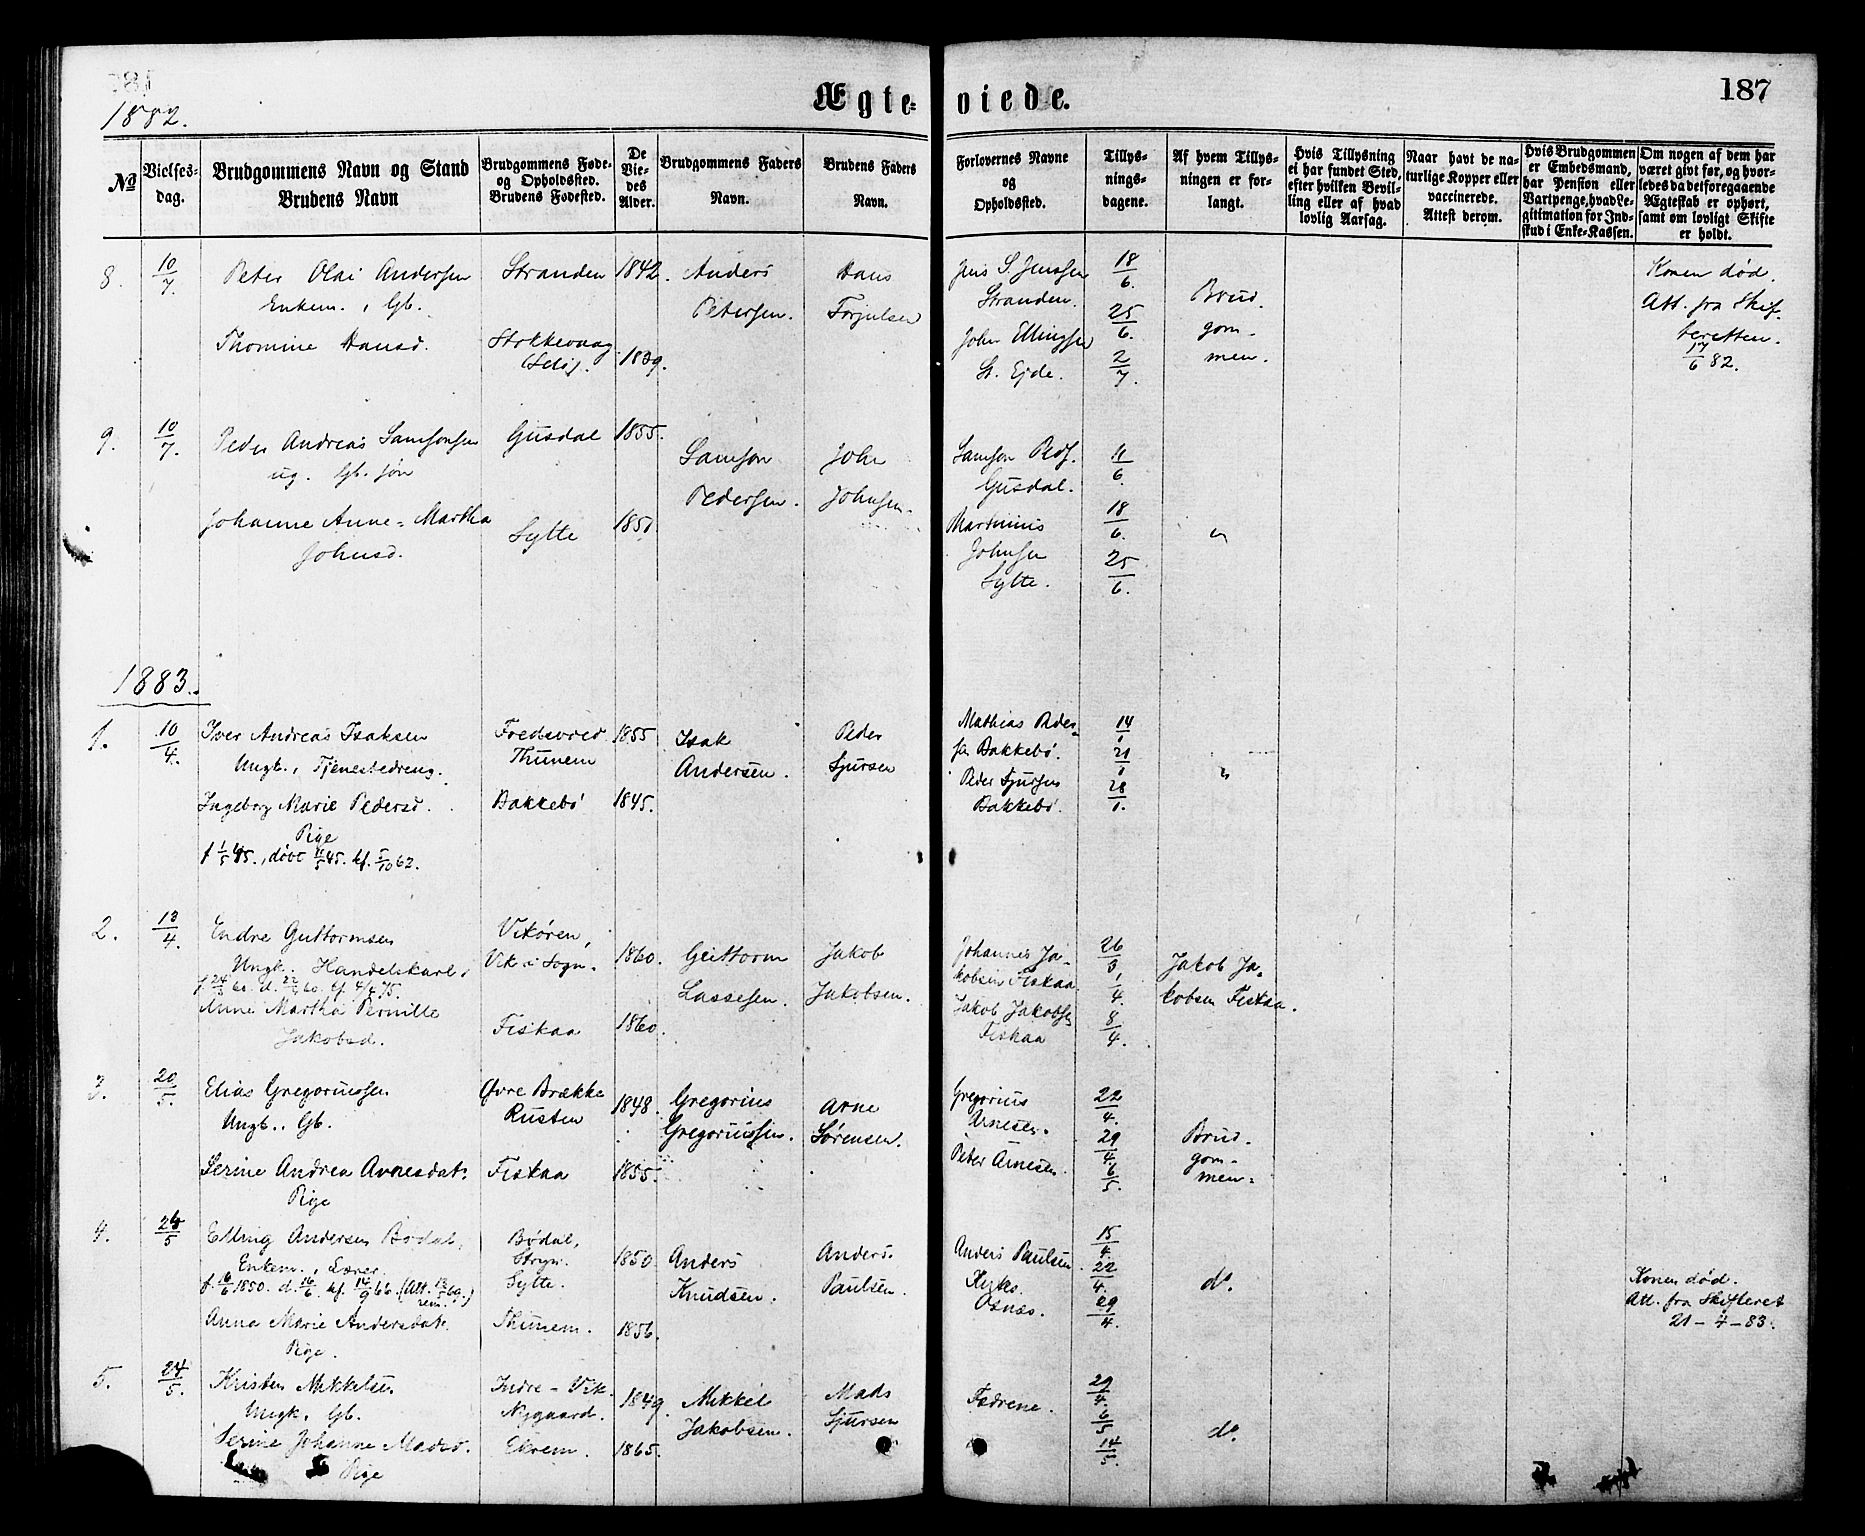 1882.
Ægte-
viede.
187
No
Vielses-
dag.
Brudgommens Navn og Stand
Brudens Navn
Brudgommens Føde-
og Opholdssted.
Brudens Fødested.
De
Vie-
des
Alder.
Brudgommens Faders
Navn.
Brudens Faders
Navn.
Forlovernes Navne
og
Opholdssted.
Tillys-
nings-
dagene.
Af hvem Tillys-
ningen er for-
langt.
Hvis Tillysning
ei har fundet Sted,
efter hvilken Bevil-
ling eller af hvad
lovlig Aarsag.
Naar havt de na-
turlige Kopper eller
vaccinerede.
Attest derom.
Hvis Brudgommen
er Embedsmand,
har Pension eller
Vartpenge, hvad Le-
gitimation for Ind-
skud i Enke-Kassen.
Om nogen af dem har
været givt før, og hvor-
ledes da det foregaaende
Ægteskab er ophørt,
samt om lovligt Skifte
er holdt.
8. 10/7. Peter Olai Andersen Stranden 1842. Anders Hans Jens S. Jenssen 18/6. Konen død.
Enkem., Gb. Petersen. Stranden. 25/6. Brud- Att. fra Skif-
Thomine Hansd. Stokkevaag 1839. John Ellingsen gom- teretten.
(Selø). St. Ejde. 2/7. men. 17/6 82.
9. 10/7. Peder Andreas Samsonsen Gusdal 1855. Samson John Samson Peds. 11/6.
ug. Gb. søn Pedersen. Johnsen. Gusdal.
Johanne Anne-Martha Sytte 1851 Martinius 18/6. "
Johnsd. Johnsen 25/6.
Sytte.
1883.
1. 10/4. Iver Andreas Isaksen 1855 Isak Peder Mathias Peder- 14/1
Ungk., Tjenestedreng. Thunem Andersen. Sjursen sen Bakkebø. 21/1 "
Ingeborg Marie Pedersd. Bakkebø 1845. Peder Sjursen 28/1.
Pige Bakkebø.
f 1/5 45., døbt 11/5 45. kf. 5/10 62.
2. 13/4. Endre Guttormsen Vikøren, 1860. Guttorm Jakob Johannes Ja- 26/3 Jakob Ja-
Ungk. Handelskarl, Vik i Sogn. Lassesen. Jakobsen. kobsen Fiskaa 1/4. kobsen Fiskaa.
Anne Martha Pernille Fiskaa 1860. Jakob Jakobsen 8/4.
Jakobsd. Fiskaa
3. 20/5. Elias Gregoriussen Øvre Brække 1848. Gregorius Arne Gregorius 22/4.
Ungk., Gb. Rusten Gregoriussen. Sørensen. Arnesen. 29/4. Brud-
Serine Andrea Arnesdat. Fiskaa 1855. Peter Arnesen. 6/5. gom-
Pige men.
4. 24/5 Elling Andersen Bødal, Bødal, 1850 Anders Anders Anders Paulsen 15/4.
Enkem., Lærer. Stryn. Knudsen. Paulsen. 22/4. do. Konen død.
f. 16/6 1850. d. 16/6. kf. 14/9 66. Sytte. Osnæs. 29/4. Att. fra Skifteret
Anna Marie Andersdat. Thunem. 1856. 21-4-83.
Pige.
5. 24/5. Kristen Mikkelsen Indre-Vik. 1849. Mikkel Mads Fædrene. 29/4.
Ungk., Gb. Nygaard. Jakobsen. Sjursen 6/5 do.
Serine Johanne Madsd. Ekrem. 1865. 14/5.
Pige